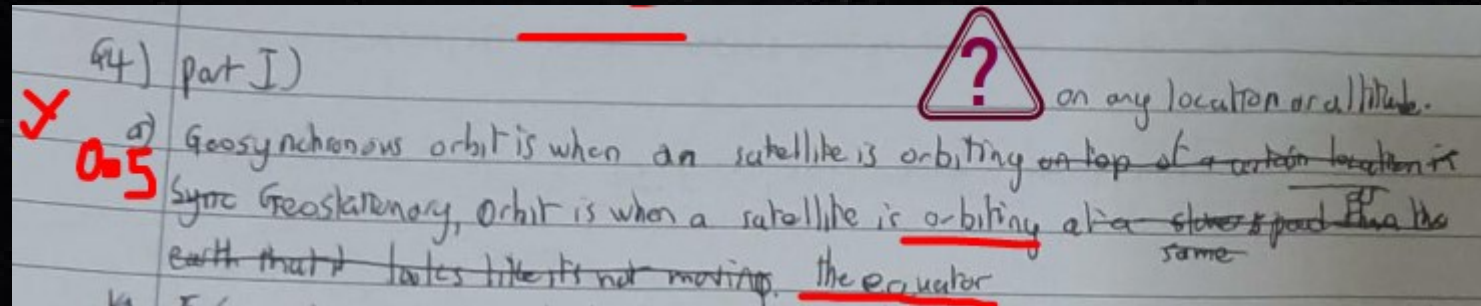 Q4) part I)
?
on any location or altitude.
a) Geosynchronous orbit is when an satellite is orbiting on top of a certain location it
0.5
Sync Geostationary, Orbit is when a satellite is orbiting at a slower speed than the
same
earth that it looks like it's not moving. the equator